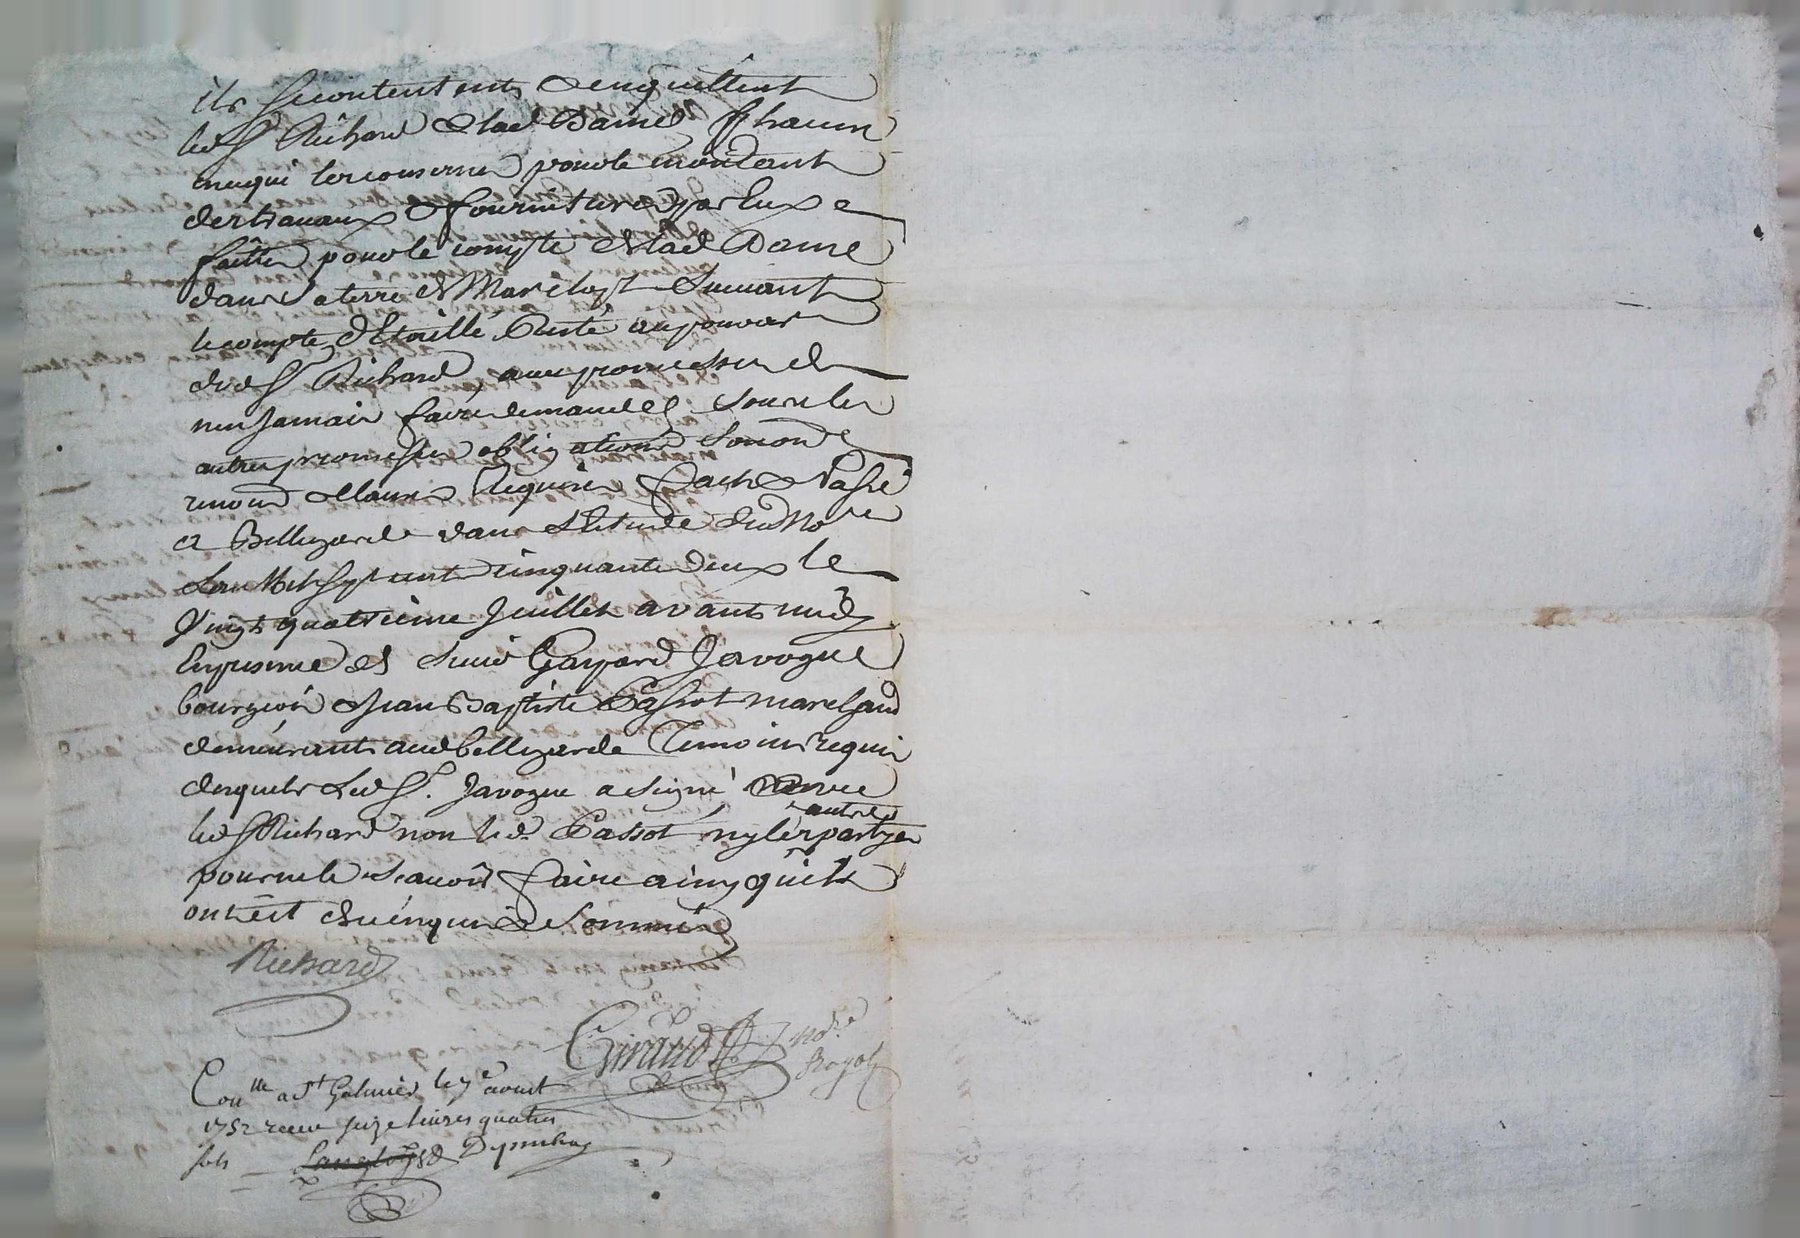 ils se contentent & en quittent
led Sr Richard & lad Dame chacun
en ce qui les concerne pour le montant
des travaux & fournitures par Eux
faittes pour le compte de lad Dame
dans la terre de Marclopt suivant
le compte détaillé resté au pouvoir
dud Sr Richard, avec promesse de
n'en Jamais faire demande sous les
autres promesses obligations soumon
renond & clauses Requises fait & Passé
a Bellegarde dans L'Etude dud Nore
L'an Mil sept cent cinquante deux le
Vingt quatrieme Juillet avant midy
En presence de sieur Gaspard Javogue
bourgeois & Jean Baptiste Passot marchand
demeurants aud bellegarde Temoins requis
desquels led Sr. Javogue a signé avec
led Sr Richard non led. Passot ny les autres partyes
pour ne le scavoir faire ainsy qu'ils
ont dit de ce enquis & sommés
Richard
Giraud Nore
Royal
Conlle a St Galmier le 7e aoust
1752 receu seize livres quatre
sols Langlois